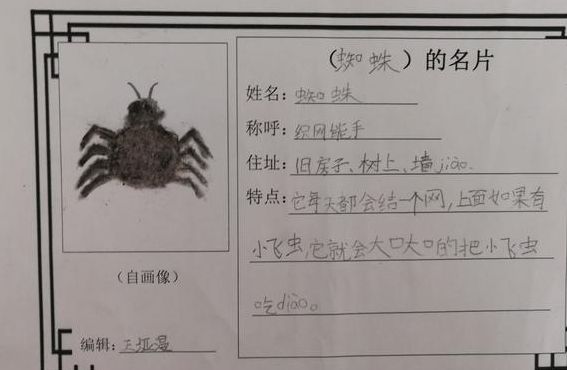 （蜘蛛）的名片
姓名：蜘蛛
称呼：织网能手
住址：旧房子、树上、墙jiǎo.
特点：它每天都会结一个网，上面如果有
小飞虫，它就会大口大口的把小飞虫
吃diào。
（自画像）
编辑：王